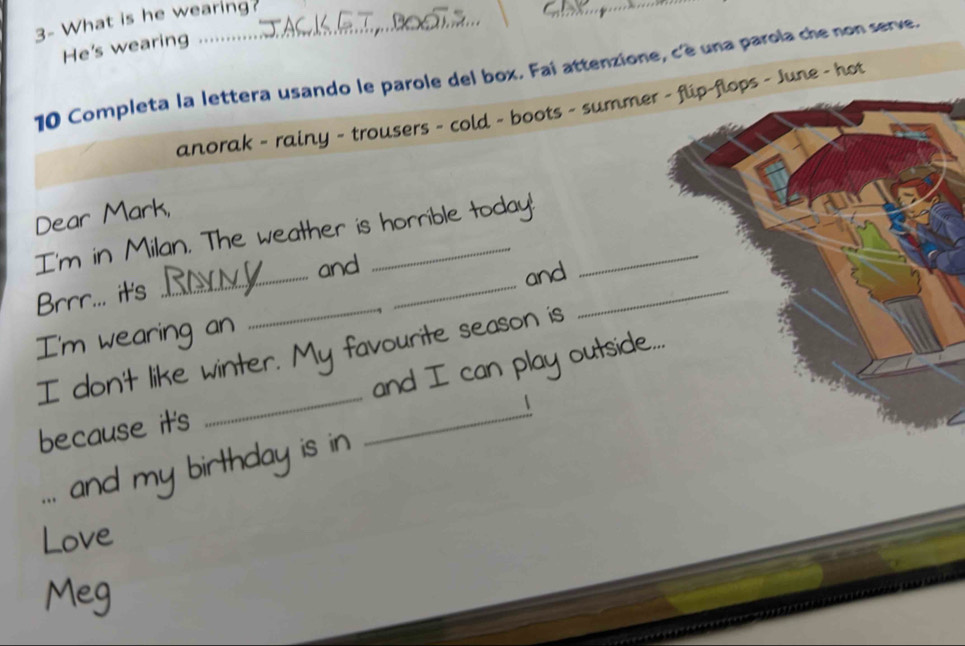 3- What is he wearing?
He's wearing JACKET, BOOTS
10 Completa la lettera usando le parole del box. Fai attenzione, c'è una parola che non serve.
anorak - rainy - trousers - cold - boots - summer - flip-flops - June - hot
Dear Mark,
I'm in Milan. The weather is horrible today!
Brrr... it's RAINY and
I'm wearing an , and
I don't like winter. My favourite season is
because it's and I can play outside...
... and my birthday is in !
Love
Meg